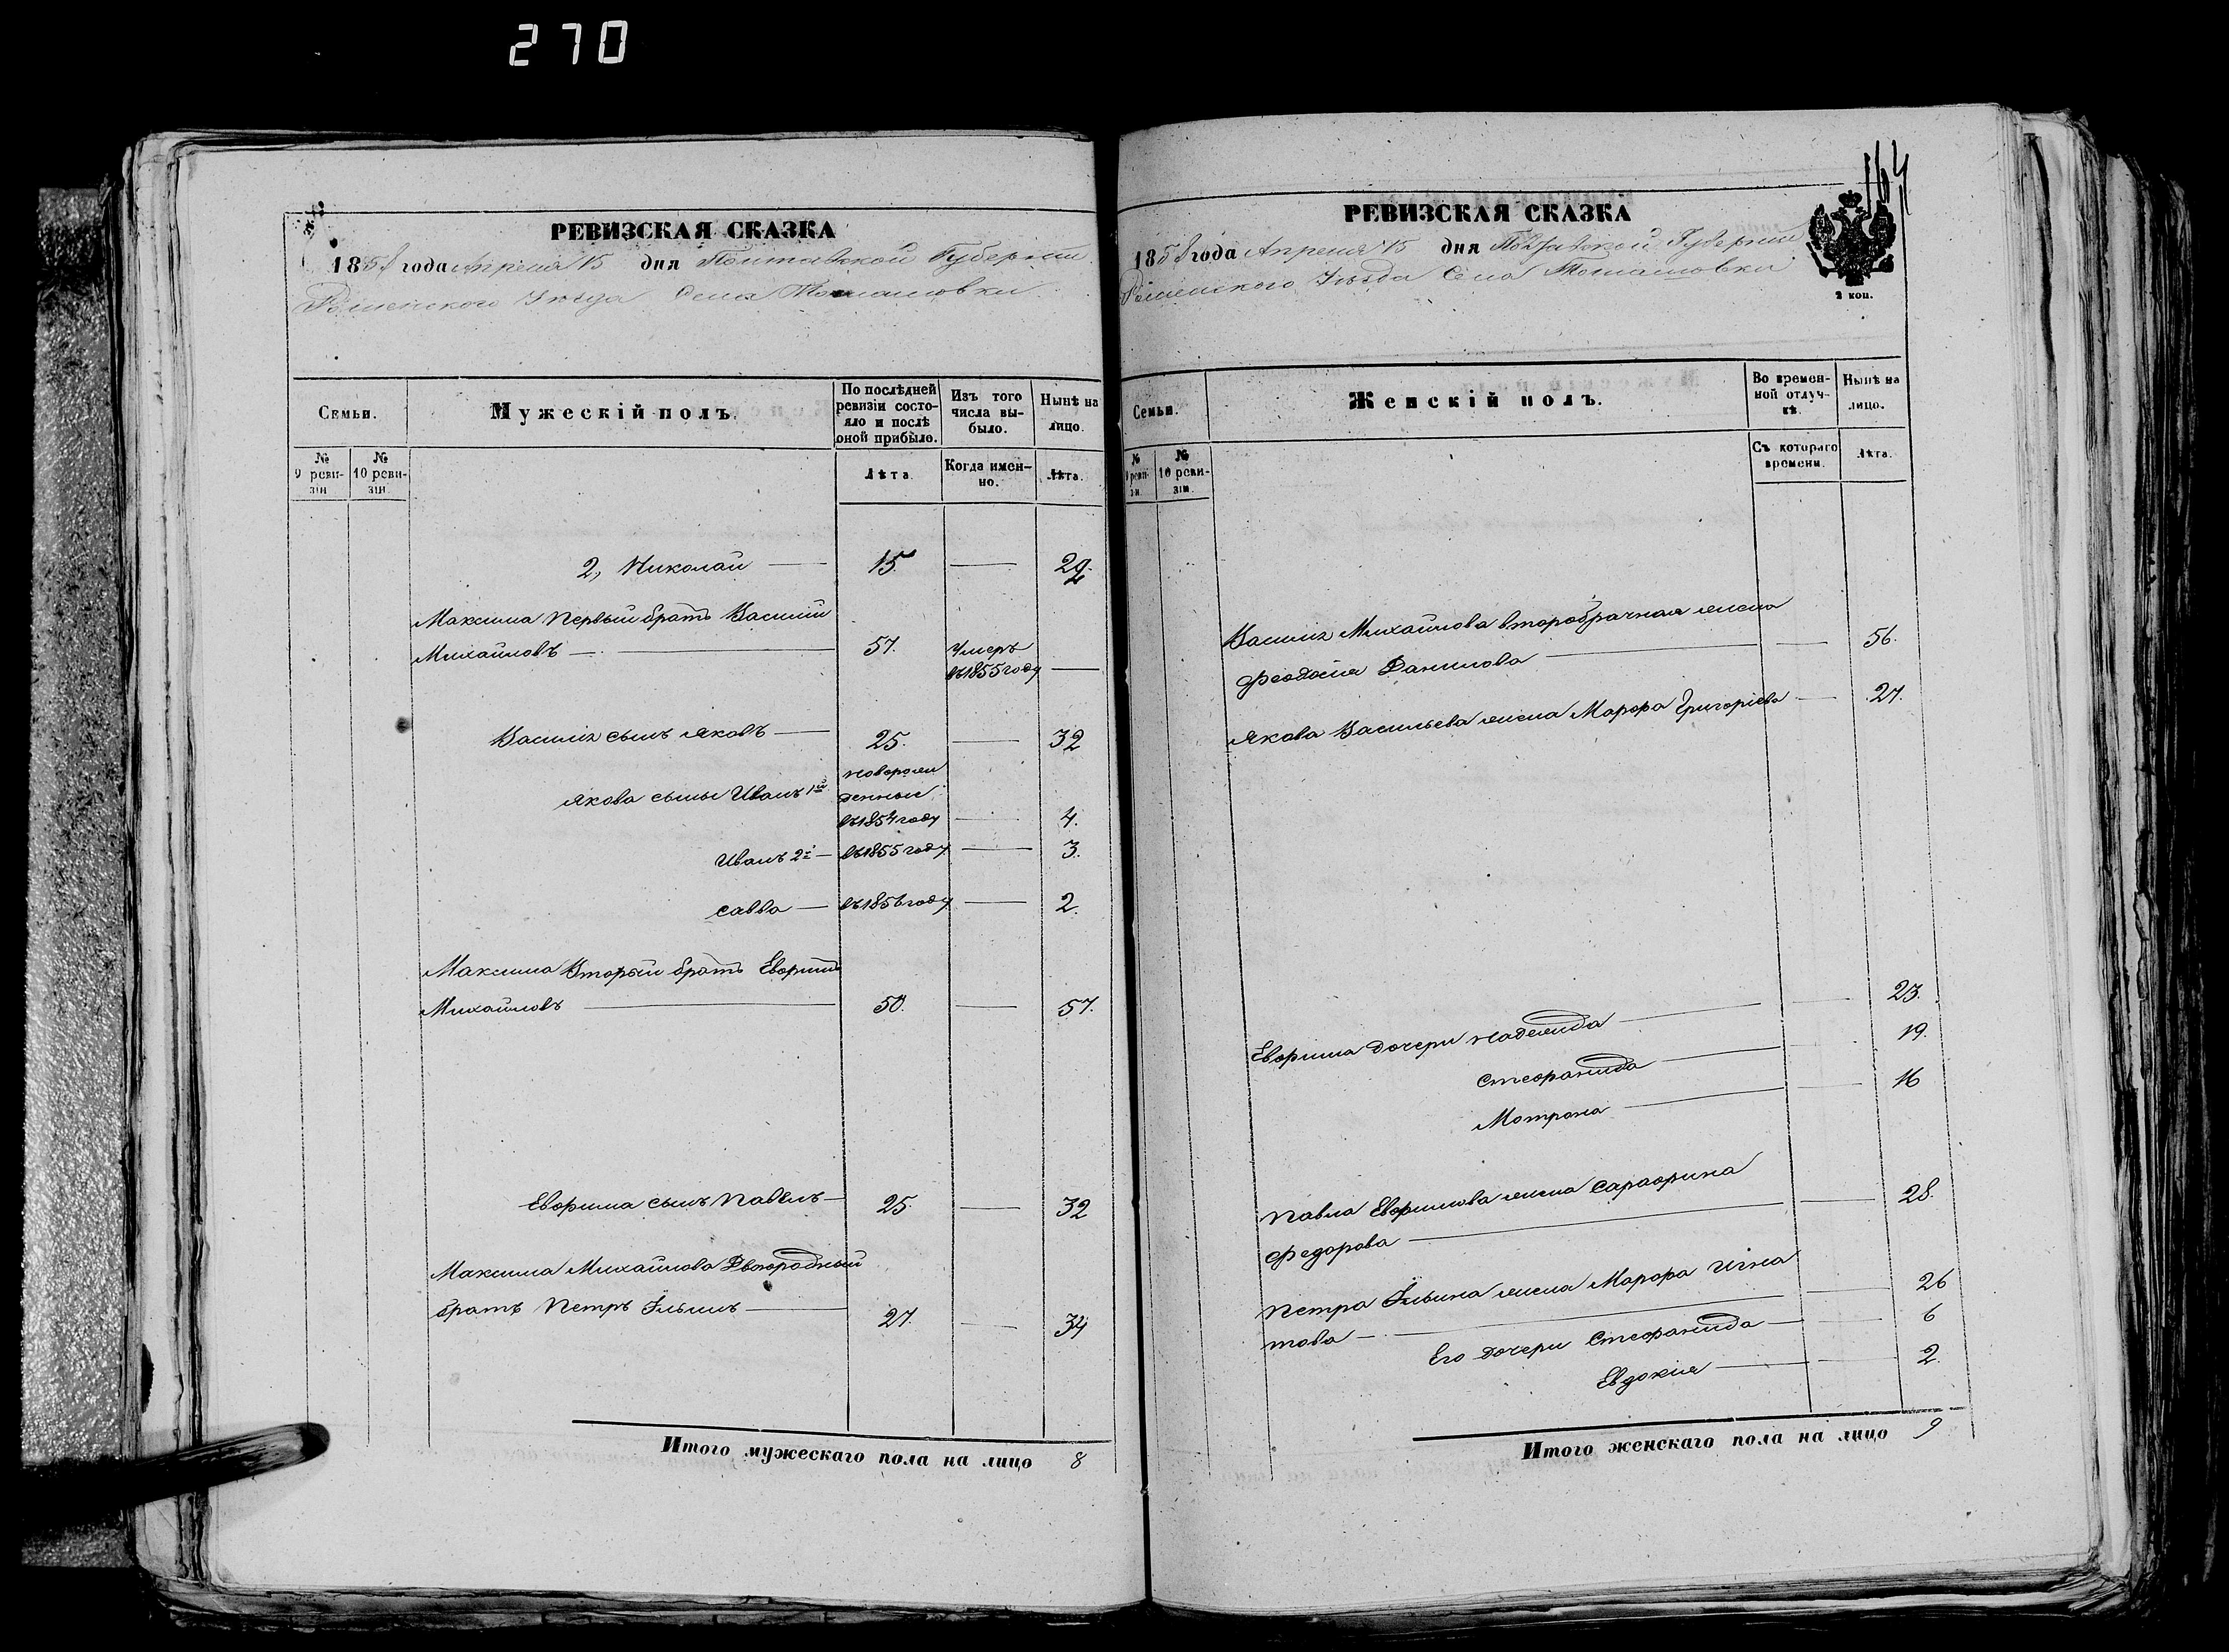 270
РЕВИЗСКАЯ СКАЗКА
1858 года Апреля 15 дня Полтавской Губернии
Роменского Уѣзда Села
Семьи.
Мужескій полъ.
По послѣдней ревизіи состояло и послѣ оной прибыло.
Изъ того числа выбыло.
Нынѣ на лицо.
№ 9 ревизіи
№ 10 ревизіи.
Лѣта.
Когда именно.
Лѣта.
2, Николай — 15. — 22.
Максима Первый братъ Василий
Михайловъ — 57. Умеръ
въ 1855 году —
Василія сынъ Яковъ — 25. — 32
новорож
Якова сыны Иванъ 1й денные
въ 1854 году — 4.
Иванъ 2й — въ 1855 году — 3.
Савва — въ 1856 году — 2.
Максима Вторый братъ Евфимъ
Михайловъ — 50. — 57.
Евфима сынъ Павелъ — 25. — 32
Максима Михайлова Двоюродный
братъ Петръ Ильинъ — 27. — 34
Итого мужескаго пола на лицо 8
164
РЕВИЗСКАЯ СКАЗКА
1858 года Апреля 15 дня Полтавской Губернии
Роменского Уѣзда Села
2 коп.
Семьи.
Женскій полъ.
Во временной отлучкѣ.
Нынѣ на лицо.
№ 9 ревизіи.
№ 10 ревизіи.
Съ котораго времени.
Лѣта.
Василія Михайлова второбрачная жена
Феодосия Данилова — 56.
Якова Васильева жена Марфа Григоріева — 27.
Евфима дочери Надежда — 23.
Стефанида — 19.
Мотрона — 16
Павла Евфимова жена Сарафина
Федорова — 28.
Петра Ильина жена Марфа Игна
това — 26
Его дочери Стефанида — 6
Евдокія — 2.
Итого женскаго пола на лицо 9